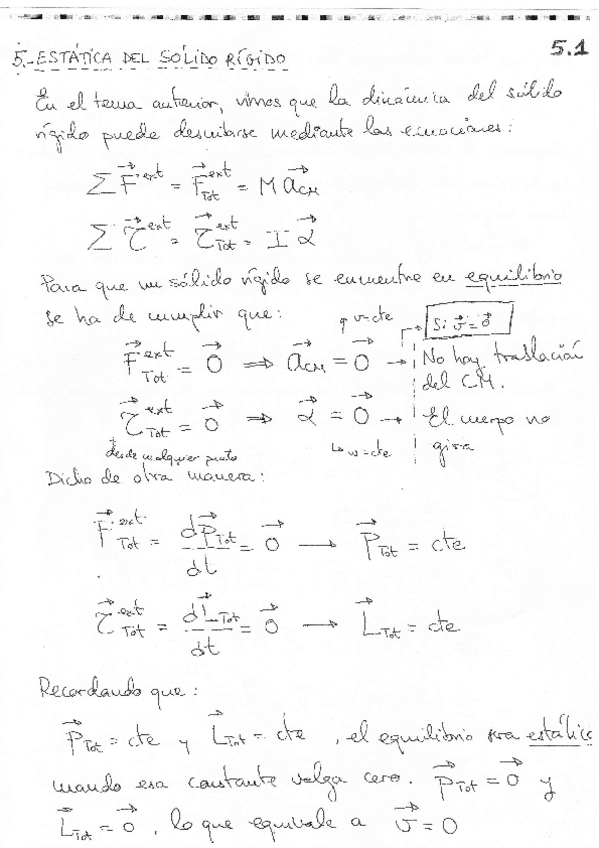 5.1
5.- ESTÁTICA DEL SÓLIDO RÍGIDO
En el tema anterior, vimos que la dinámica del sólido
rígido puede describirse mediante las ecuaciones:
∑ F⃗^ext = F⃗_Tot^ext = M a⃗_CM
∑ τ⃗^ext = τ⃗_Tot^ext = I α⃗
Para que un sólido rígido se encuentre en equilibrio
se ha de cumplir que:
↱ v=cte
Si v⃗=0⃗
F⃗_Tot^ext = 0⃗ ⟹ a⃗_CM = 0⃗ → No hay traslación
del CM.
τ⃗_Tot^ext = 0⃗ ⟹ α⃗ = 0⃗ → El cuerpo no
gira
desde cualquier punto
↳ w=cte
Dicho de otra manera:
F⃗_Tot^ext = dP⃗_Tot/dt = 0⃗ → P⃗_Tot = cte
τ⃗_Tot^ext = dL⃗_Tot/dt = 0⃗ → L⃗_Tot = cte
Recordando que:
P⃗_Tot = cte y L⃗_Tot = cte, el equilibrio será estático
cuando esa constante valga cero. P⃗_Tot = 0⃗ y
L⃗_Tot = 0⃗, lo que equivale a v⃗ = 0